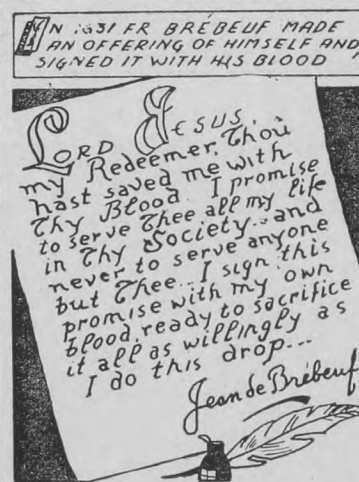 IN 1631 FR BRÉBEUF MADE
AN OFFERING OF HIMSELF AND
SIGNED IT WITH HIS BLOOD
LORD JESUS,
my Redeemer, Thou
hast saved me with
Thy Blood. I promise
to serve Thee all my life
in Thy Society... and
never to serve anyone
but Thee... I sign this
promise with my own
blood, ready to sacrifice
it all as willingly as
I do this drop...
Jean de Brébeuf